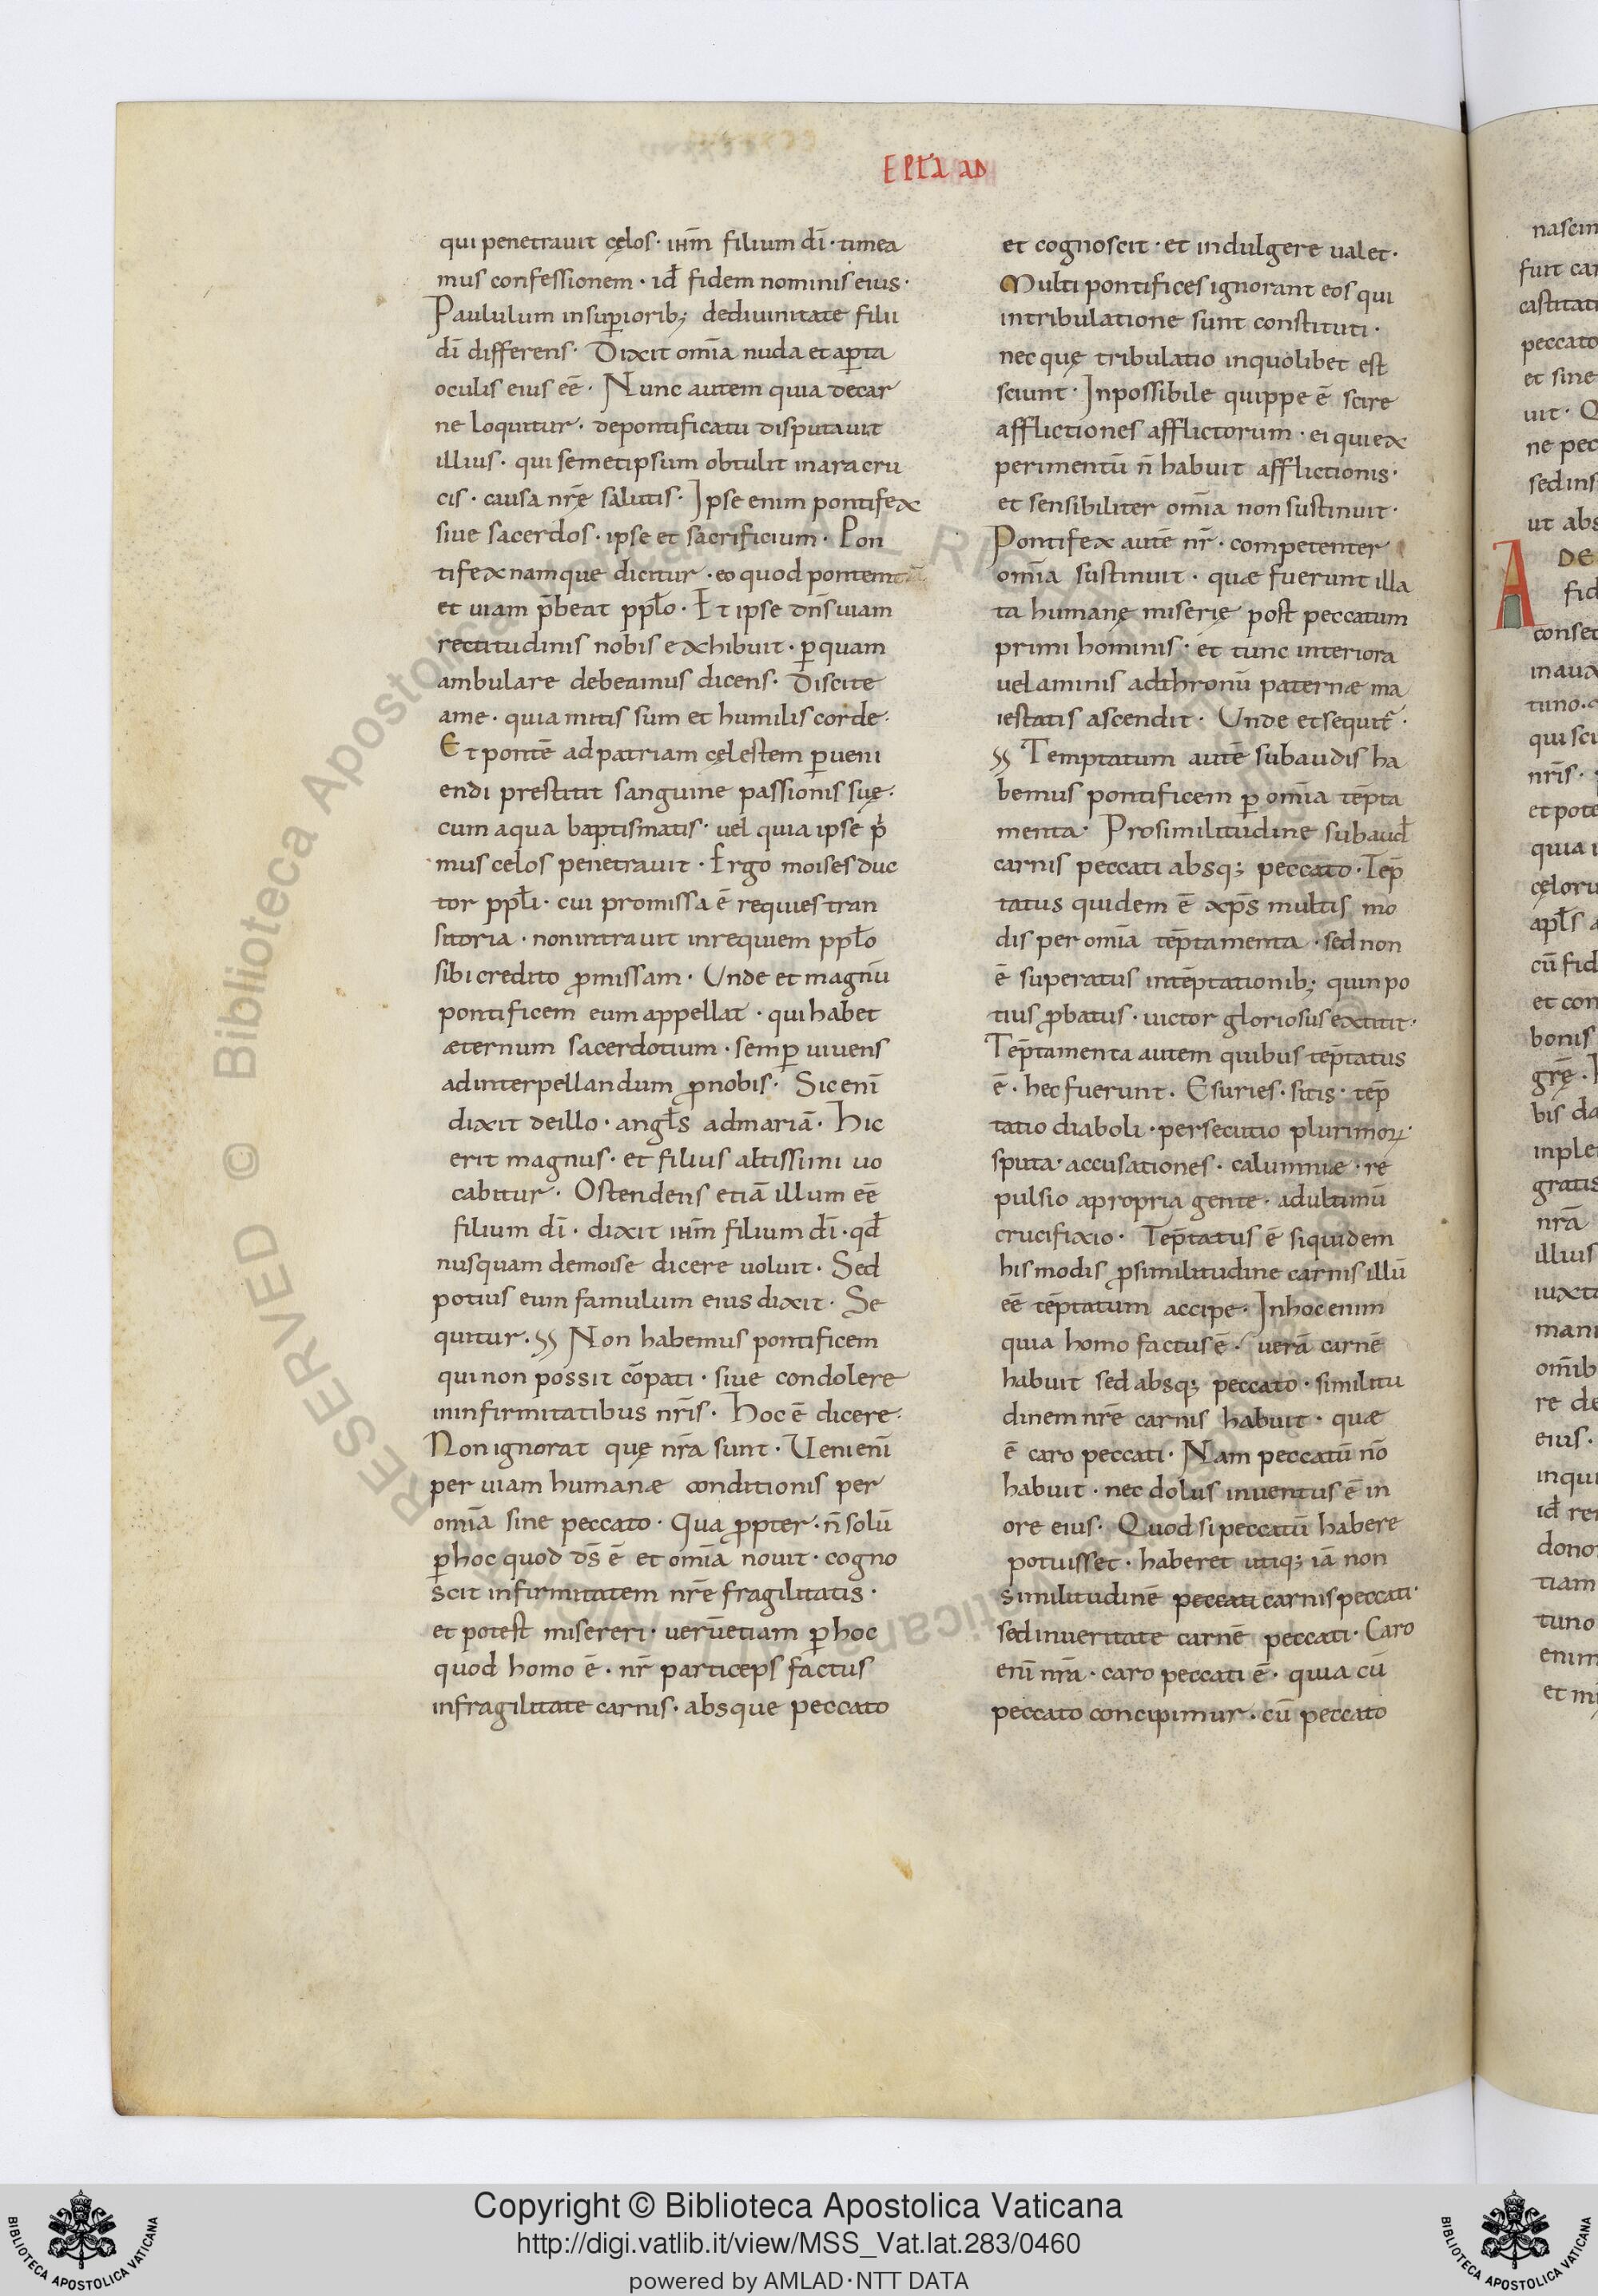 EPLA AD
qui penetrauit cęlos · ihm̄ filium dī · timea
mus confessionem · id̄ fidem nominis eius ·
Paululum insuꝑiorib; dediuinitate filii
dī differens · Dixit om̄ia nuda et aꝑta
oculis eius eē · Nunc autem quia decar
ne loquitur · depontificatu disputauit
illius · qui semetipsum obtulit inara cru
cis · causa nr̄ę salutis · Ipse enim pontifex
siue sacerdos · ipse et sacrificium · Pon
tifex namque dicitur · eo quod pontem
et uiam p̄beat ppl̄o · Et ipse dn̄s uiam
rectitudinis nobis exhibuit · ꝑquam
ambulare debeamus dicens · Discite
ame · quia mitis sum et humilis corde ·
Et pontē ad patriam cęlestem ꝑueni
endi prestitit sanguine passionis suę ·
cum aqua baptismatis · uel quia ipse pͥ
mus celos penetrauit · Ergo moises duc
tor ppl̄i · cui promissa ē requies tran
sitoria · nonintrauit inrequiem ppl̄o
sibi credito ꝓmissam · Unde et magnū
pontificem eum appellat · qui habet
æternum sacerdotium · semꝑ uiuens
adinterpellandum ꝓnobis · Sic enī
dixit deillo · angl̄s admariā · Hic
erit magnus · et filius altissimi uo
cabitur · Ostendens etiā illum eē
filium dī · dixit ihm̄ filium dī · qd̄
nusquam demoise dicere uoluit · Sed
potius eum famulum eius dixit · Se
quitur · §§ Non habemus pontificem
qui non possit cōpati · siue condolere
ininfirmitatibus nr̄is · Hoc ē dicere ·
Non ignorat quę nr̄a sunt · Uenienī
per uiam humanæ conditionis per
om̄ia sine peccato · Qua ꝓpter · n̄ solū
ꝑhoc quod ds̄ ē et om̄ia nouit · cogno
scit infirmitatem nr̄e fragilitatis ·
et potest misereri · uerūetiam ꝑhoc
quod homo ē · nr̄ particeps factus
infragilitate carnis · absque peccato
et cognoscit · et indulgere ualet ·
Multi pontifices ignorant eos qui
intribulatione sunt constituti ·
nec quę tribulatio inquolibet est
sciunt · Inpossibile quippe ē scire
afflictiones afflictorum · ei qui ex
perimentū n̄ habuit afflictionis ·
et sensibiliter om̄ia non sustinuit ·
Pontifex autē nr̄ · competenter
om̄ia sustinuit · quæ fuerunt illa
ta humanę miserię post peccatum
primi hominis · et tunc interiora
uelaminis adthronū paternæ ma
iestatis ascendit · Unde et sequit̄ ·
§§ Temptatum autē subaudis ha
bemus pontificem ꝑ om̄ia tēpta
menta · Prosimilitudine subaud̄
carnis peccati absq; peccato · Tēp
tatus quidem ē xp̄s multis mo
dis per om̄ia tēptamenta · sed non
ē superatus intēptationib; quin po
tius ꝓbatus · uictor gloriosus extitit ·
Tēptamenta autem quibus tēptatus
ē · hec fuerunt · Esuries · sitis · tēp
tatio diaboli · persecutio plurimoꝝ ·
sputa · accusationes · calumniæ · re
pulsio apropria gente · adultimū
crucifixio · Tēptatus ē siquidem
his modis ꝓsimilitudine carnis illū
eē tēptatum accipe · Inhoc enim
quia homo factus ē · uerā carnē
habuit sed absq; peccato · similitu
dinem nr̄e carnis habuit · quæ
ē caro peccati · Nam peccatū nō
habuit · nec dolus inuentus ē in
ore eius · Quod si peccatū habere
potuisset · haberet utiq; iā non
similitudinē peccati carnis peccati ·
sed inueritate carnē peccati · Caro
enī nr̄a · caro peccati ē · quia cū
peccato concipimur · cū peccato
nascim
furt car
castitati
peccato
et sine
uit · Q
ne pec
sed ins
ut abs
A
DE
fid
conseq
inaux
tuno ·
qui sci
nr̄is ·
et pote
quia i
cęloru
apl̄s a
cū fid
et con
bonis
gr̄ę ·
bis da
inple
gratis
nr̄a
illius
iuxta
mani
om̄ib
re de
eius ·
inqui
id̄ re
dono
tiam
tuno
enim
et mi
© Biblioteca Apostolica Vaticana
RESERVED
Copyright © Biblioteca Apostolica Vaticana
http://digi.vatlib.it/view/MSS_Vat.lat.283/0460
powered by AMLAD·NTT DATA
BIBLIOTECA APOSTOLICA VATICANA
BIBLIOTECA APOSTOLICA VATICANA